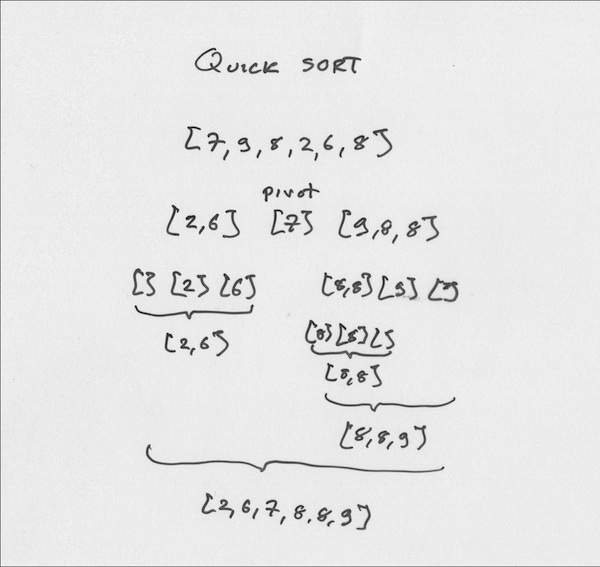 Quick SORT
[7, 9, 8, 2, 6, 8]
pivot
[2,6] [7] [9,8,8]
[] [2] [6] [8,8] [9] []
[2,6] [8] [8] []
[8,8]
[8,8,9]
[2,6,7,8,8,9]